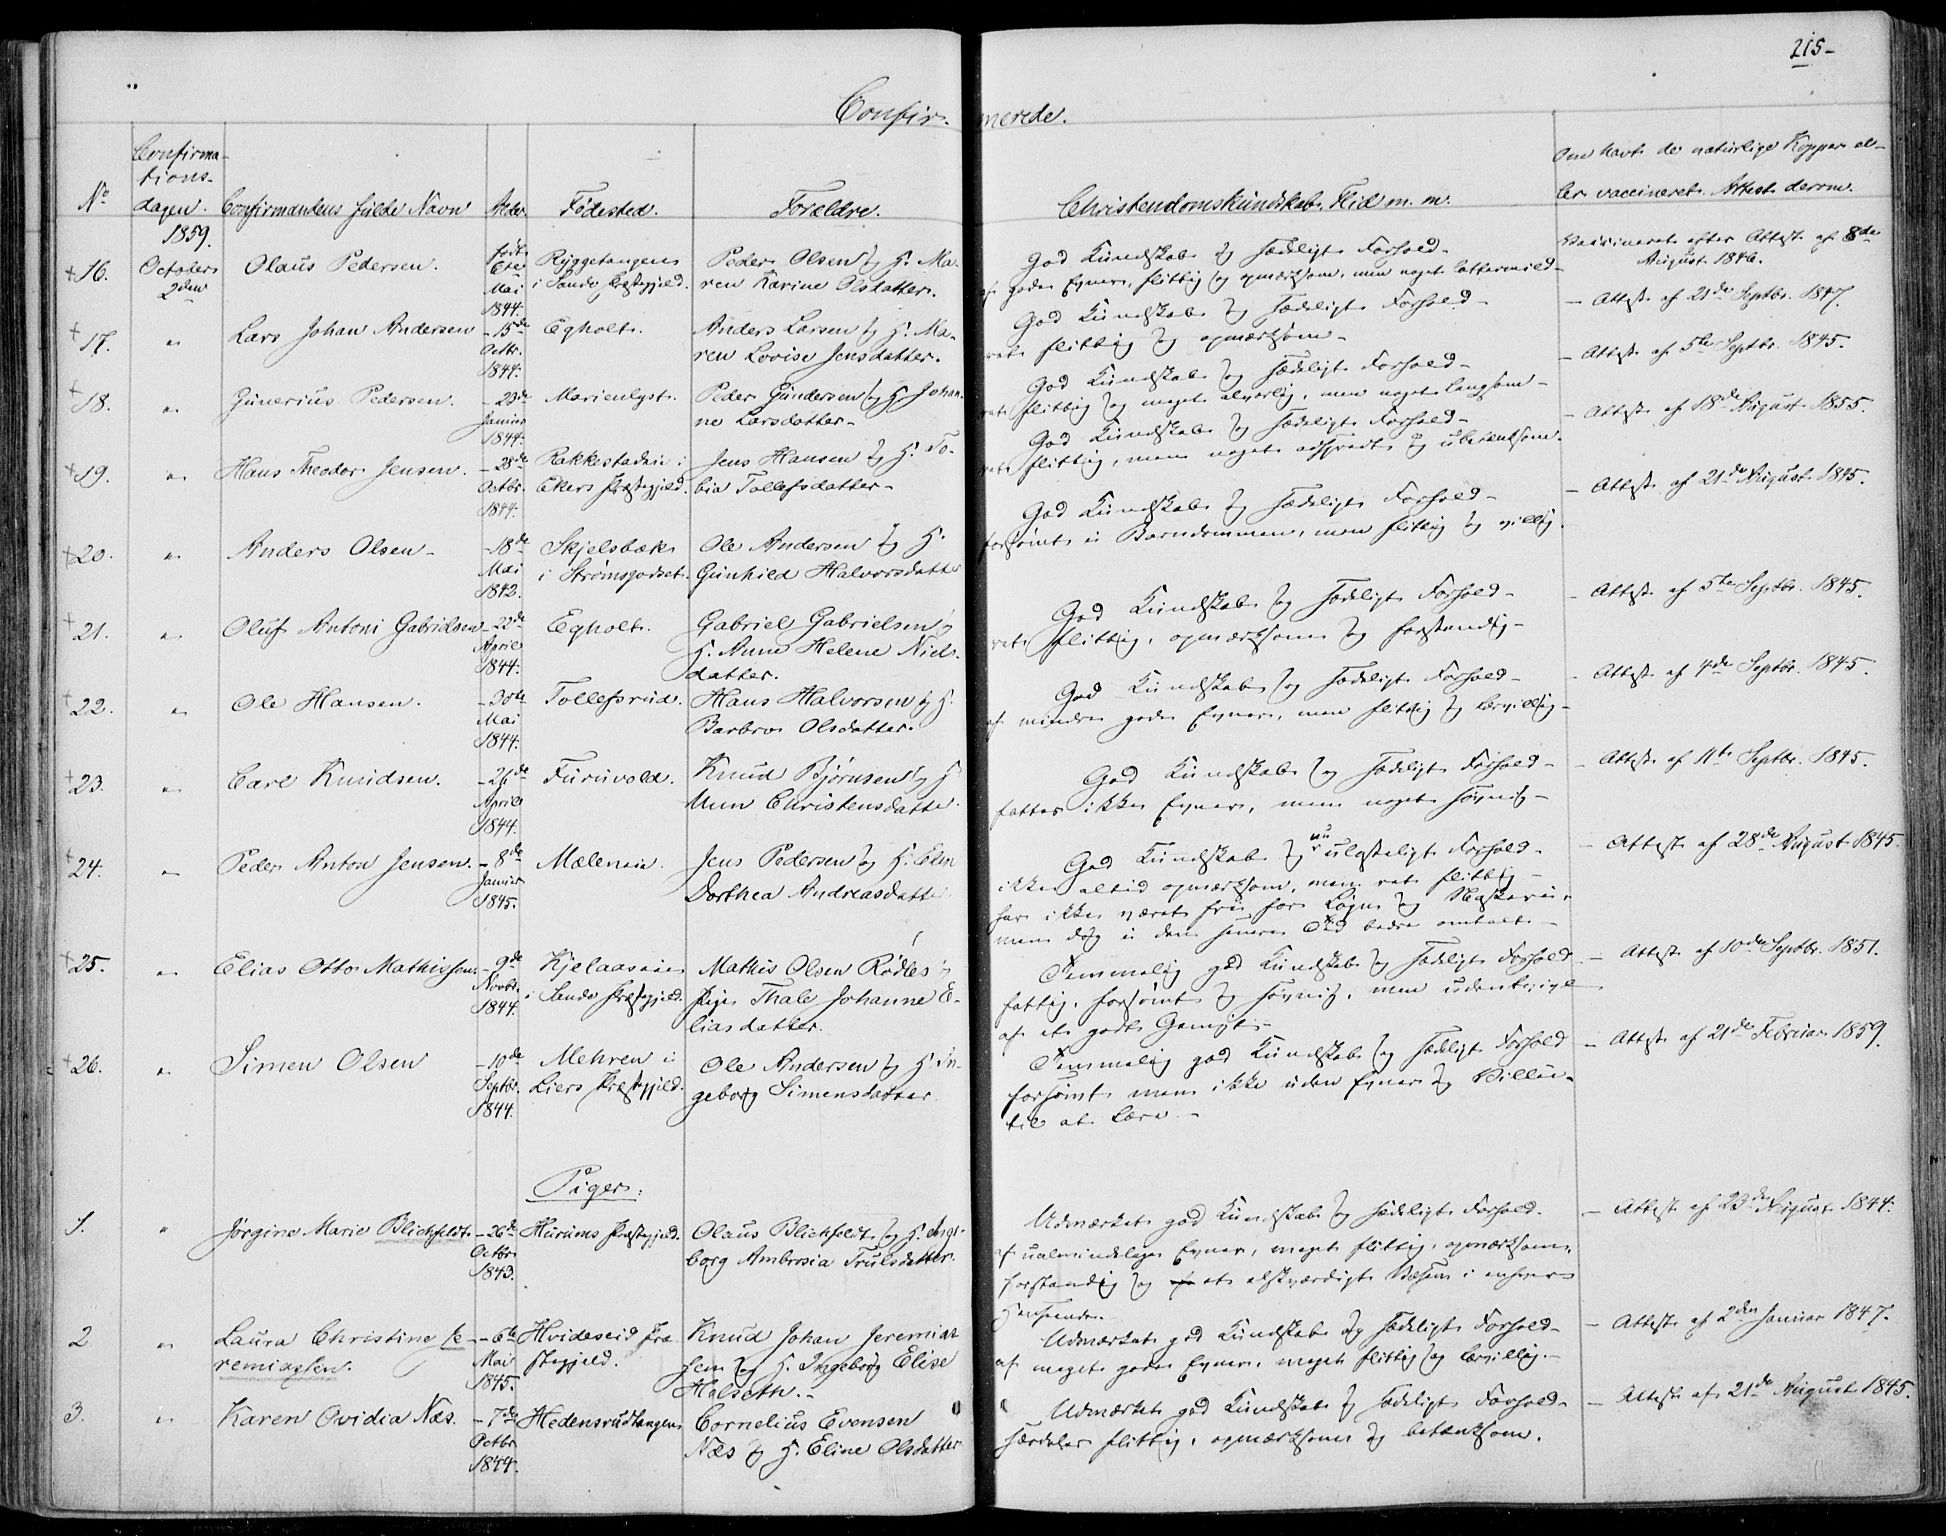 215-
Confir- merede.
No
Confirma-
tions-
dagen.
Confirmandens fulde Navn
Alder.
Fødested.
Forældre.
Christendomskundskab, Flid m. m.
Om havt de naturlige Kopper el-
ler vaccineret. Attest derom.
1859.
16. October 2den Olaus Pedersen. født
6te Mai 1844. Ryggetangen
i Sande Præstegjeld. Peder Olsen og H. Ma-
ren Karine Olsdatter. God Kundskab og sædeligt Forhold-
af gode Evner, flittig og opmærksom, men noget lattermild-
Vaccineret efter Attest af 8de
August 1846.
17. " Lars Johan Andersen - 15de
Octbr. 1844. Egholt. Anders Larsen og H. Ma-
ren Lovise Jensdatter. God Kundskab og sædeligt Forhold-
ret flittig og opmærksom-
- Attest af 21de Septbr. 1847.
18. " Gunerius Pedersen. - 23de
Januar 1844. Marienlyst. Peder Gundersen og H. Johan-
ne Larsdatter- God Kundskab og sædeligt Forhold-
ret flittig og meget alvorlig, men noget langsom-
- Attest af 5te Septbr. 1845.
19. " Hans Theodor Jensen. - 28de
Octbr. 1844. Rakkestadeie i
Ekers Præstegjeld. Jens Hansen og H. To-
bia Tollefsdatter- God Kundskab og sædeligt Forhold-
ret flittig, men noget adspredt og ubetænksom.
- Attest af 18de August 1855.
20. " Anders Olsen- - 18de
Mai 1842. Skjelsbæk
i Strømsgodset. Ole Andersen og H.
Gunhild Halvorsdatter God Kundskab og sædeligt Forhold-
forsømt i Barndommen, men flittig og villig.
- Attest af 21de August 1845.
21. " Oluf Antoni Gabrielsen - 22de
April 1844. Egholt. Gabriel Gabrielsen og
H. Anne Helene Niels-
datter. God Kundskab og sædeligt Forhold-
ret flittig, opmærksom og forstandig-
- Attest af 5te Septbr. 1845.
22. " Ole Hansen. - 30te
Mai 1844. Tollefsrud. Hans Halvorsen og H.
Barbro Olsdatter. God Kundskab og sædeligt Forhold-
af mindre gode Evner, men flittig og lærvillig-
- Attest af 4de Septbr. 1845.
23. " Carl Knudsen. - 26de
April 1844. Furuvold. Knud Bjørnsen og H
Christensdatter. God Kundskab og sædeligt Forhold-
fattes ikke Evner, men noget søvnig-
- Attest af 11te Septbr. 1845.
24. " Peder Anton Jensen. - 8de
Januar 1845. Mæleneie. Jens Pedersen og H. Elen
Dorthea Andreasdatter God Kundskab og nu ulasteligt Forhold-
ikke altid opmærksom, men ret flittig-
har ikke været fri for Løgn og Naskeri,
men dog i den senere Tid bedre omtalt-
- Attest af 28de August 1845.
25. " Elias Otto Mathissen - 9de
Novbr. 1844. Kjelaaseie
i Sande Præstegjeld. Mathis Olsen Rødles og
Pige Thale Johanne E-
liasdatter. Temmelig god Kundskab og sædeligt Forhold
fattig, forsømt og søvnig, men udentvivl
af et godt Gemyt-
- Attest af 10de Septbr. 1851.
26. " Simen Olsen - 10de
Septbr. 1844. Mehren i
Liers Præstegjeld. Ole Andersen og H. In-
geborg Simensdatter. Temmelig god Kundskab og sædeligt Forhold
forsømt men ikke uden Evner og Villie
til at lære.-
- Attest af 21de Februar 1859.
Piger.
1. " Jørgine Marie Blichfeldt - 26de
Octbr. 1843. Hurums Præstegjeld. Olaus Blichfeldt og H. Inge-
borg Ambrosia Trulsdatter. Udmærket god Kundskab og sædeligt Forhold-
af ualmindelige Evner, meget flittig, opmærksom,
forstandig og et elskværdigt Væsen i enhver
Henseende.
- Attest af 23de August 1844.
2 " Laura Christine Je-
remiassen. - 6te
Mai 1845. Hvideseid Præ-
stegjeld. Knud Johan Jeremias-
sen og H. Ingeborg Elise
Halseth.- Udmærket god Kundskab og sædeligt Forhold-
af meget gode Evner, meget flittig og lærvillig.-
- Attest af 2den Januar 1847.
3. " Karen Ovidia Næs. - 7de
Octbr. 1844. Hedensrudtangen Cornelius Evensen
Næs og H. Eline Olsdatter Udmærket god Kundskab og sædeligt Forhold-
særdeles flittig, opmærksom og betænksom.
- Attest af 21de August 1845.